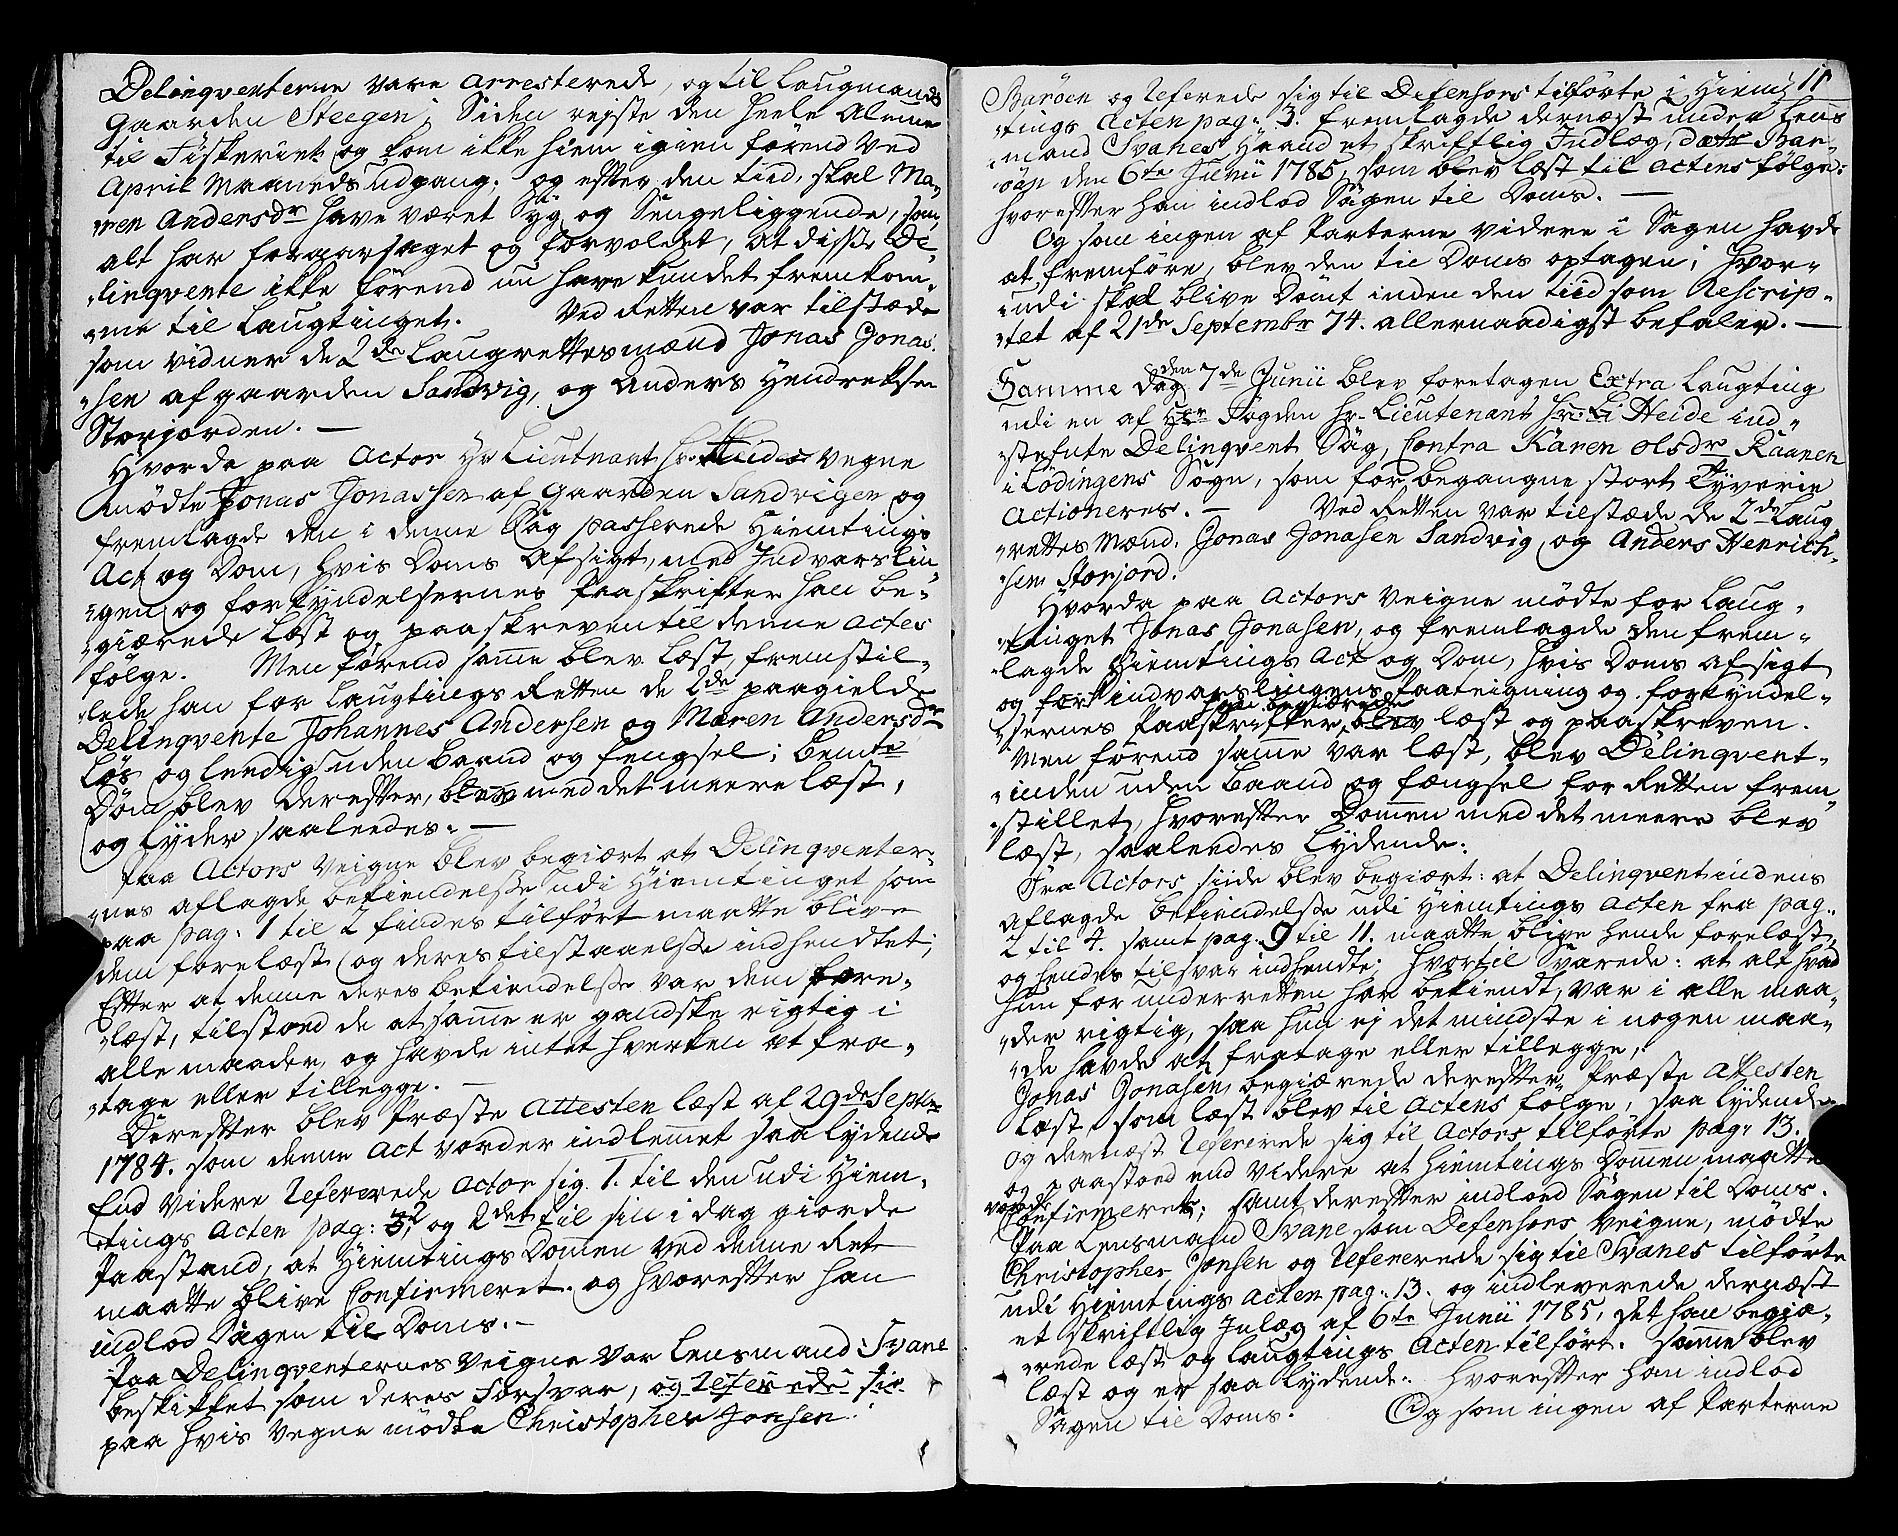 Delinqventerne vare arresterede, og til Laugmands
Gaarden Steegen; Siden rejste den heele Almue
til Fiskeriet og kom ikke hiem igien førend ved
April Maaneds udgang. og efter den tiid, skal Ma„
„ren Andersdr have været Syg og Sengeliggende, som
alt har foraarsaget og forvoldet, at disse De„
„linqvente ikke førend nu have kundet fremkom„
„me til Laugtinget. Ved Retten var tilstæde
som vidner de 2de Laugrettesmænd Jonas Jonas„
„sen af gaarden Sandvig, og Anders Hendreksen
Storjorden. —
Hvorda paa Actor Hr Lieutnant Hr. Heides vegne
mødte Jonas Jonassen af Gaarden Sandvigen og
fremlagde den i denne Sag passerede Hiemtings
Act og Dom, hvis Doms Afsigt, med Indvarslin„
„gen og forkyndelsernes Paaskrifter han be„
„giærede læst og paaskreven til denne actes
følge. Men førend samme blev læst, fremstil„
„lede han for Laugtings Retten de 2de paagieldende
Delinqvente Johannes Andersen og Maren Andersdr
løs og leedig uden Baand og fengsel; bemte
Dom blev derefter, blev med det meere læst,
og lyder saaleedes: —
Paa Actors Veigne blev begiært at Delinqventer„
„nes aflagde bekiendelse udi Hiemtinget som
paa pag: 1 til 2 findes tilført maatte blive
dem forelæst og deres tilstaaelse indhendtet;
Efter at denne deres bekiendelse var dem fore„
„læst, tilstoed de at same er gandske rigtig i
alle maader, og havde intet hverken at fra„
„tage eller tillegge. —
Derefter blev Præste Attesten læst af 29de Septbr
1784. som denne Act vorder indlemmet saa lydende
End videre Refererede Actor sig 1. til den udi Hiem„
„tings Acten pag: 3, 2 og 2det til sin i dag giorde
Paastand, at Hiemtings Dommen ved denne Ret
maatte blive Confirmeret. og hvorefter han
indlod Sagen til Doms. —
Paa Delinqventernes Veigne var Lensmand Svane
beskikket som deres Forsvar, og Refererede sig
paa hvis vegne mødte Christopher Jonsen
11
Barøen og Refererede sig til Defensors tilførte i Hiem„
„tings Acten pag: 3. fremlagde dernæst under Lens
„mand Svanes Haand et skriftlig Indlæg, dato Bar„
„øen den 6te Junii 1785, som blev læst til actens følge:
hvorefter han indlod Sagen til Doms. —
Og som ingen af Parterne videre i Sagen havde
at fremføre, blev den til Doms optagen; hvor„
„udi skal blive Dømt inden den tiid som Rescrip„
„tet af 21de Septembr 74. allernaadigst befaler. —
Samme Dag den 7de Junii blev foretagen Extra Laugting
udi en af Her Fogden Hr. Lieutenant Hr. Li Heide ind„
„stefnte Delinqvent Sag, Contra Karen Olsdr Kaanen
i Lødingens Sogn, som for begangne stort Tyverie
Actioneres. — Ved Retten var tilstæde de 2de Laug„
„rettes Mænd, Jonas Jonasen Sandvig og Anders Henrich„
„sen Storjord.
Hvorda paa Actors Veigne mødte for Laug„
„tinget Jonas Jonasen, og fremlagde den frem„
„lagde Hiemtings Act og Dom, hvis Doms afsigt
og før indvarslingens Paateigning og forkyndel„
„sernes Paaskrifter, han begiærede blev læst og paaskreven.
Men førend samme var læst, blev Delinqvent„
„inden uden baand og fængsel for Retten frem„
„stillet, hvorefter Dommen med det meere blev
læst, saaleedes lydende:
Fra Actors siide blev begiært: at Delinqventindens
aflagde bekiendelse udi Hiemtings acten fra pag:
2 til 4. samt pag: 9 til 11. maatte blive hende forelæst,
og hendes tilsvar indhendte; hvortil Svarede: at alt hvad
hun for underretten har bekiendt, var i alle maa„
„der rigtig, saa hun ej det mindste i nogen maa„
„de havde at fratage eller tillegge,
Jonas Jonasen, begiærede derefter Præste Attesten
læst, som læst blev til Actens følge, saa lydende
og dernæst Refererede sig til Actors tilførte pag: 13.
og paastoed end videre at Hiemtings Dommen maatte
vorde Confirmeret; samt derefter indlood Sagen til Doms.
Paa Lensmand Svane som Defensors Veigne, mødte
Christopher Jonsen og Refererede sig til Svanes tilførte
udi Hiemtings acten pag: 13. og indleverede dernæst
et skriftlig Inlæg af 6te Junii 1785, det han begiæ„
„rede læst og Laugtings Acten tilført. same blev
læst og er saa lydende: hvorefter han indlod
Sagen til Doms. Og som ingen af Parterne